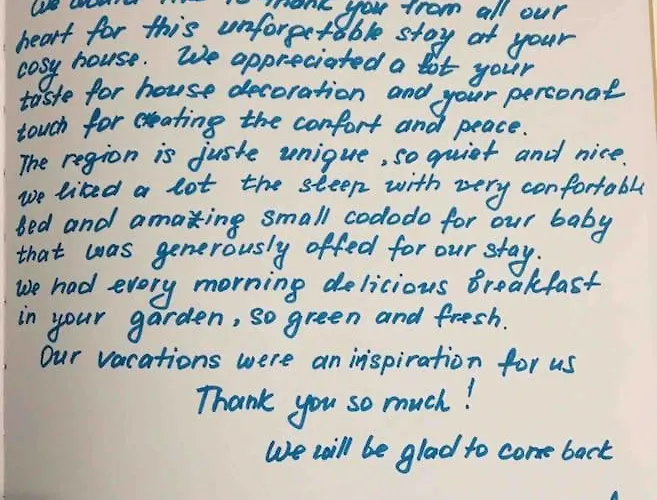 We would like to thank you from all our
heart for this unforgetable stay at your
cosy house. We appreciated a lot your
taste for house decoration and your personal
touch for creating the confort and peace.
The region is juste unique, so quiet and nice.
We liked a lot the sleep with very confortable
bed and amazing small cododo for our baby
that was generously offed for our stay.
We had every morning delicious breakfast
in your garden, so green and fresh.
Our vacations were an inspiration for us
Thank you so much!
We will be glad to come back